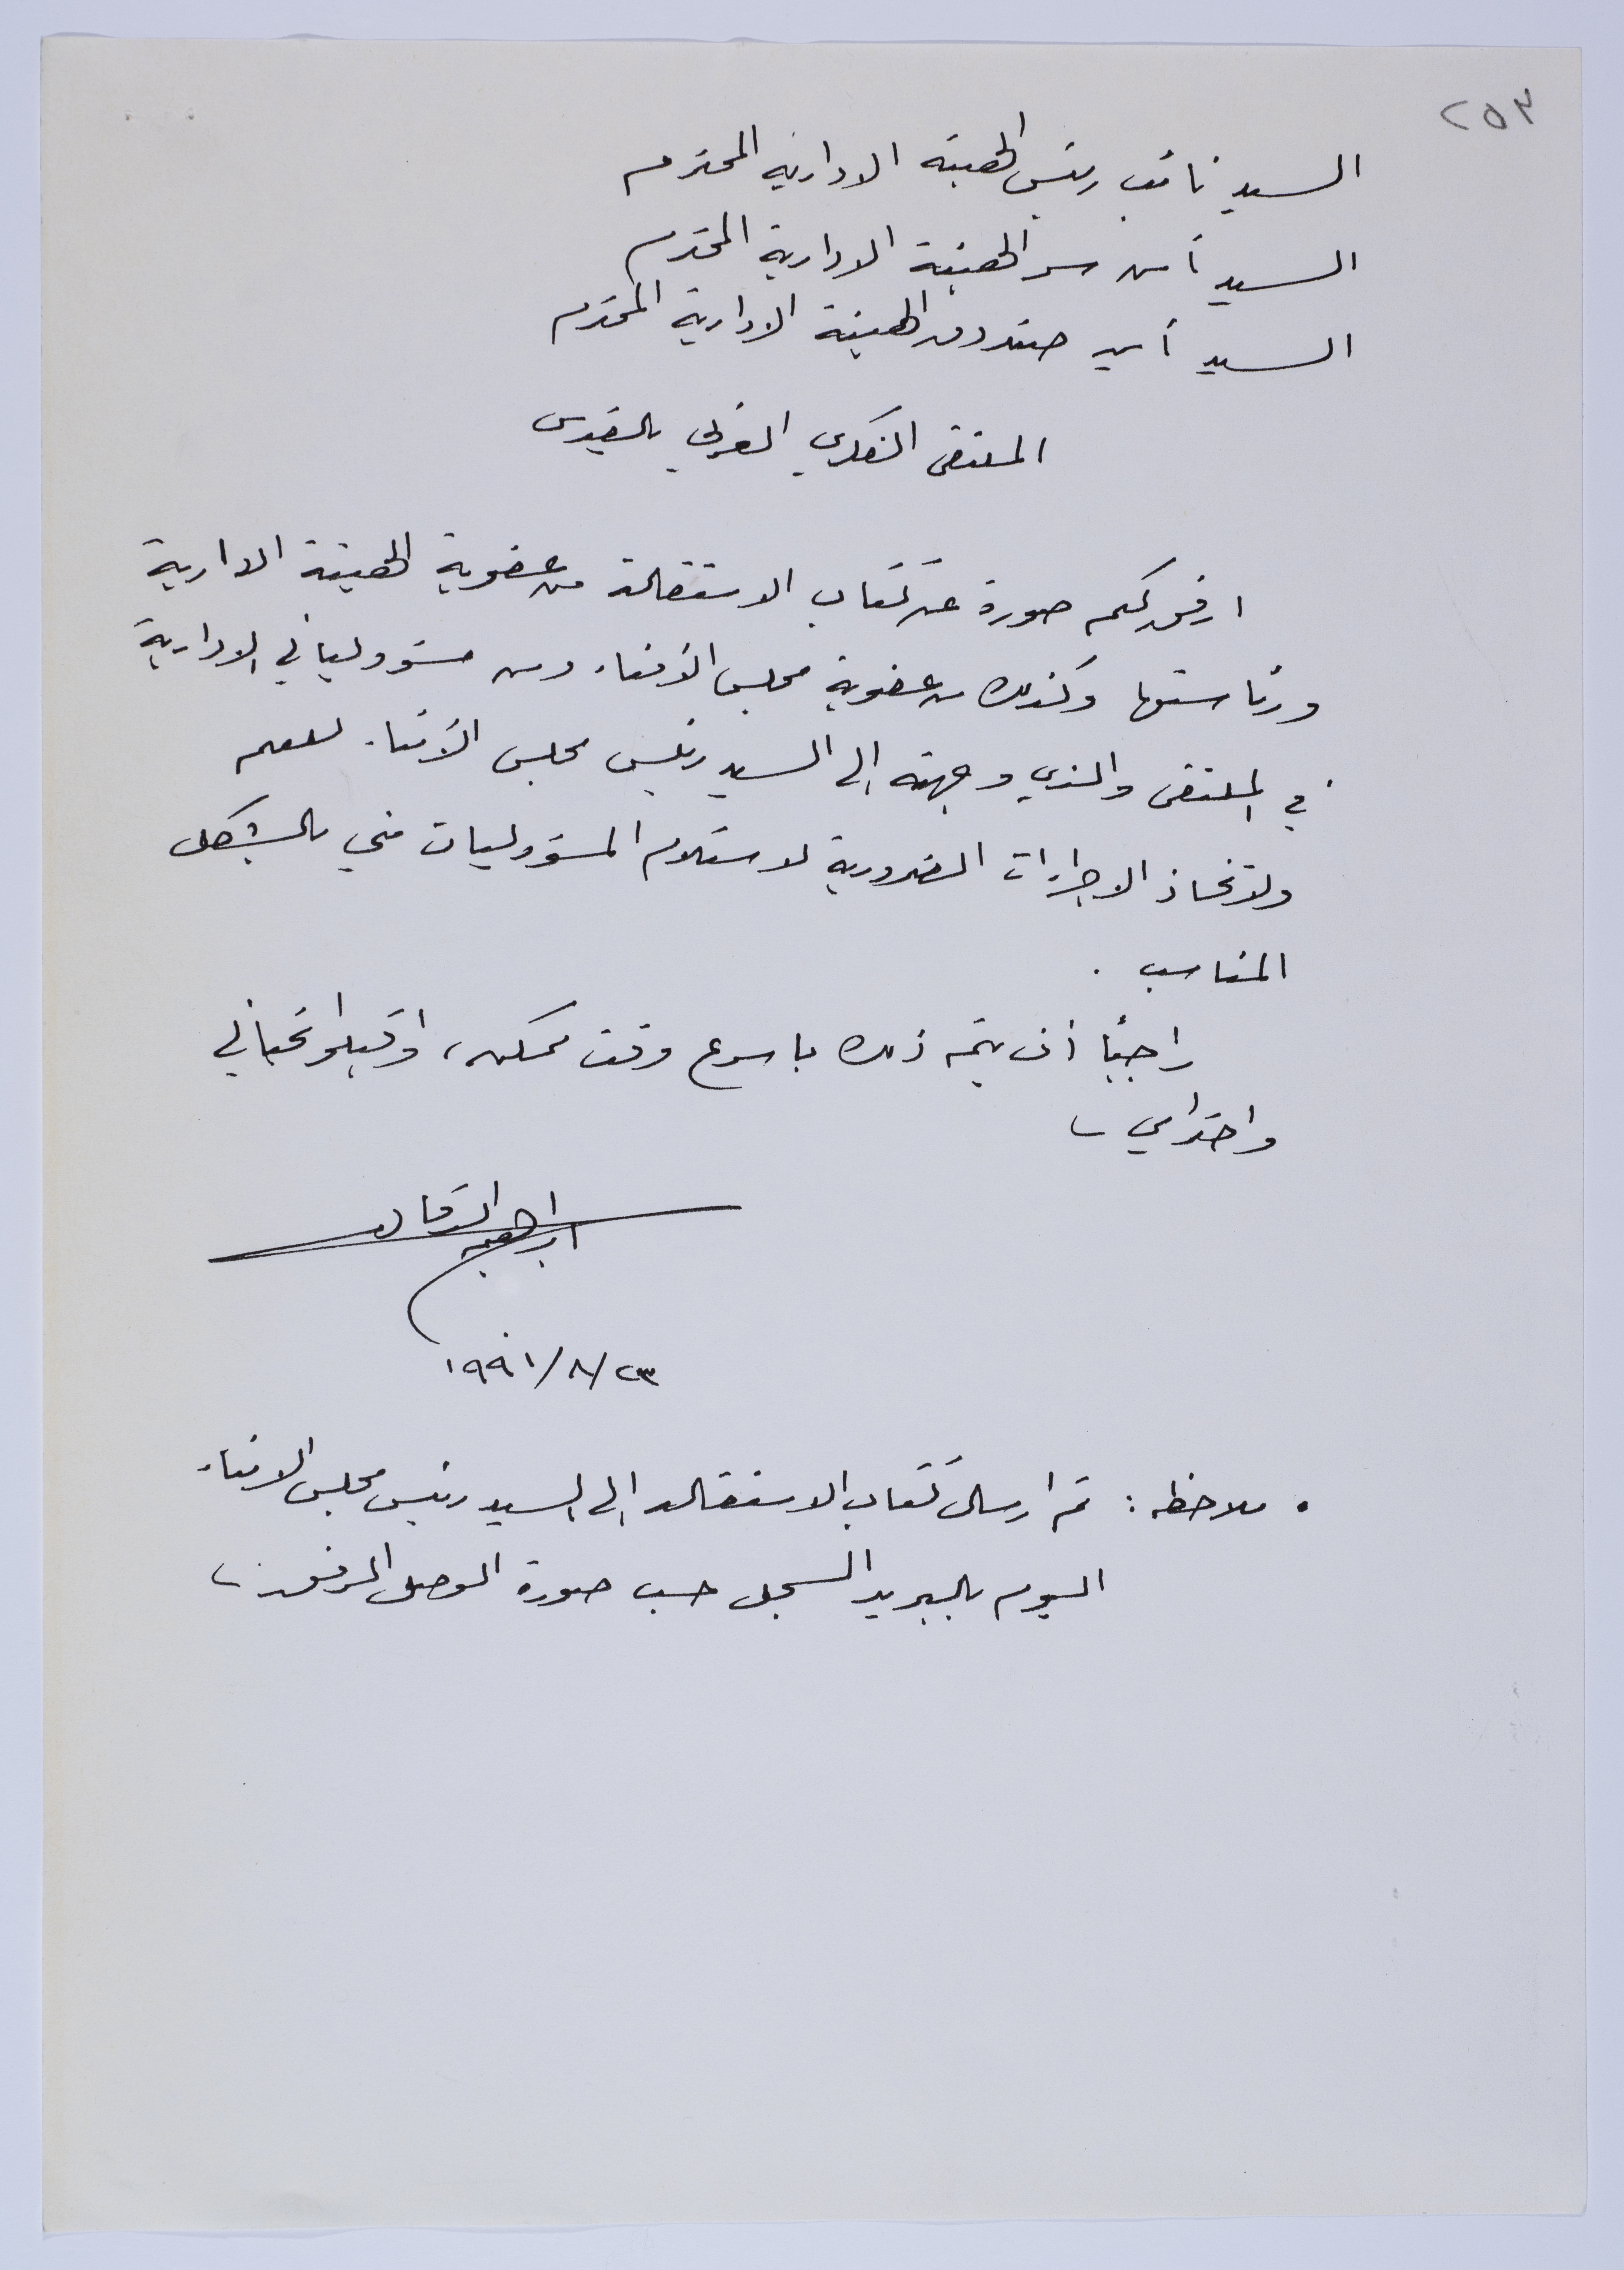 ٢٥٣
السيد نائب رئيس الهيئة الادارية المحترم
السيد أمين سر الهيئة الادارية المحترم
السيد أمين صندوق الهيئة الادارية المحترم
الملتقى الفكري العربي بالقدس
ارفق لكم صورة عن كتاب الاستقالة من عضوية الهيئة الادارية
ورئاستها وكذلك من عضوية مجلس الأمناء ومن مسؤولياتي الادارية
في الملتقى والذي وجهته الى السيد رئيس مجلس الأمناء. للعلم
ولاتخاذ الاجراءات الضرورية لاستلام المسؤوليات مني بالشكل
المناسب .
راجياً أن يتم ذلك باسرع وقت ممكن، واقبلوا تحياتي
واحترامي
ابراهيم الدقاق
١٩٩١/٨/٢٣
• ملاحظة : تم ارسال كتاب الاستقالة الى السيد رئيس مجلس الامناء
اليوم بالبريد المسجل حسب صورة الوصل المرفقة